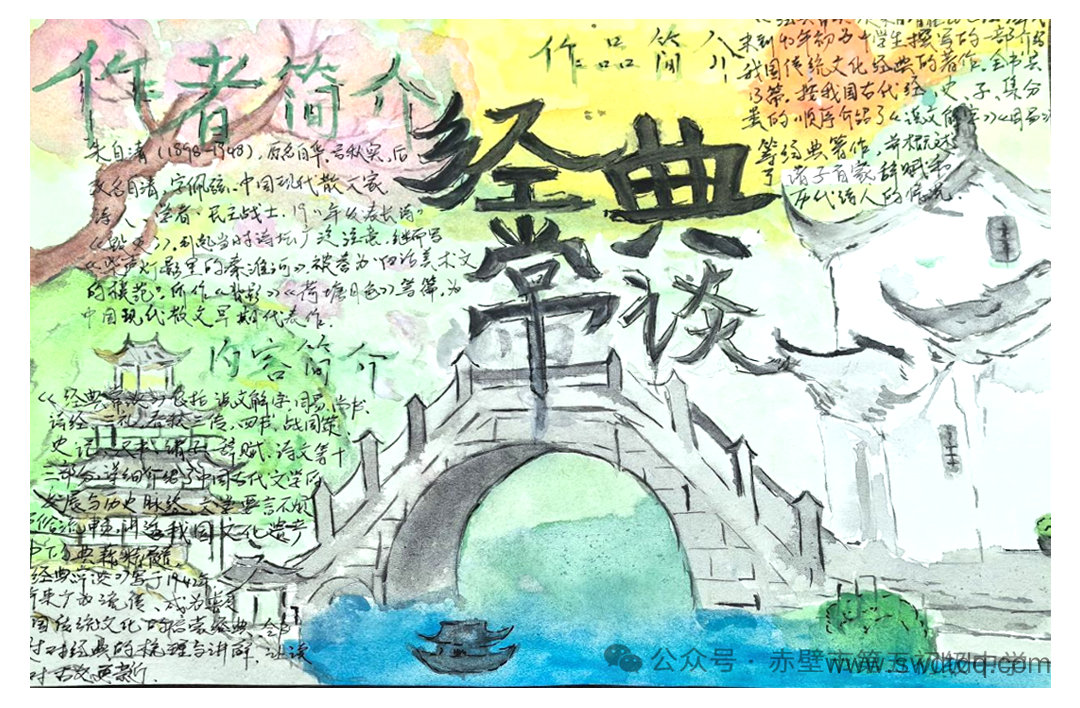 作者简介
朱自清(1898-1948),原名自华,号秋实,后
改名自清,字佩弦.中国现代散文家
诗人.学者.民主战士.19 年发表长诗
《毁灭》,引起当时诗坛广泛注意,继而写
《桨声灯影里的秦淮河》,被誉为"白话美术文
的模范".所作《背影》《荷塘月色》等篇,为
中国现代散文早期代表作.
作品简介
来到40年初为中学生撰写的一部介绍
我国传统文化经典的著作.全书共
13篇.按我国古代经、史、子、集分
类的顺序介绍了《说文解字》《周易》
等经典著作,并概述
了诸子百家辞赋和
历代诗人的情况.
经典
常谈
内容简介
《经典常谈》 说文解字 周易、尚书、
诗经、三礼、春秋三传,四书,战国策
史记、汉书 诸子 辞赋,诗文等十
三部分,详细介绍了中国古代文学的
发展与历史脉络. 要言不烦
我国文化遗产
典籍精髓.
经典常谈》写于1942年.
来广为流传、成为
国传统文化的启蒙经典.
对经典的梳理与讲解,让读
对古文更
公众号·赤壁市第五初级中学
www.swdtdq.com